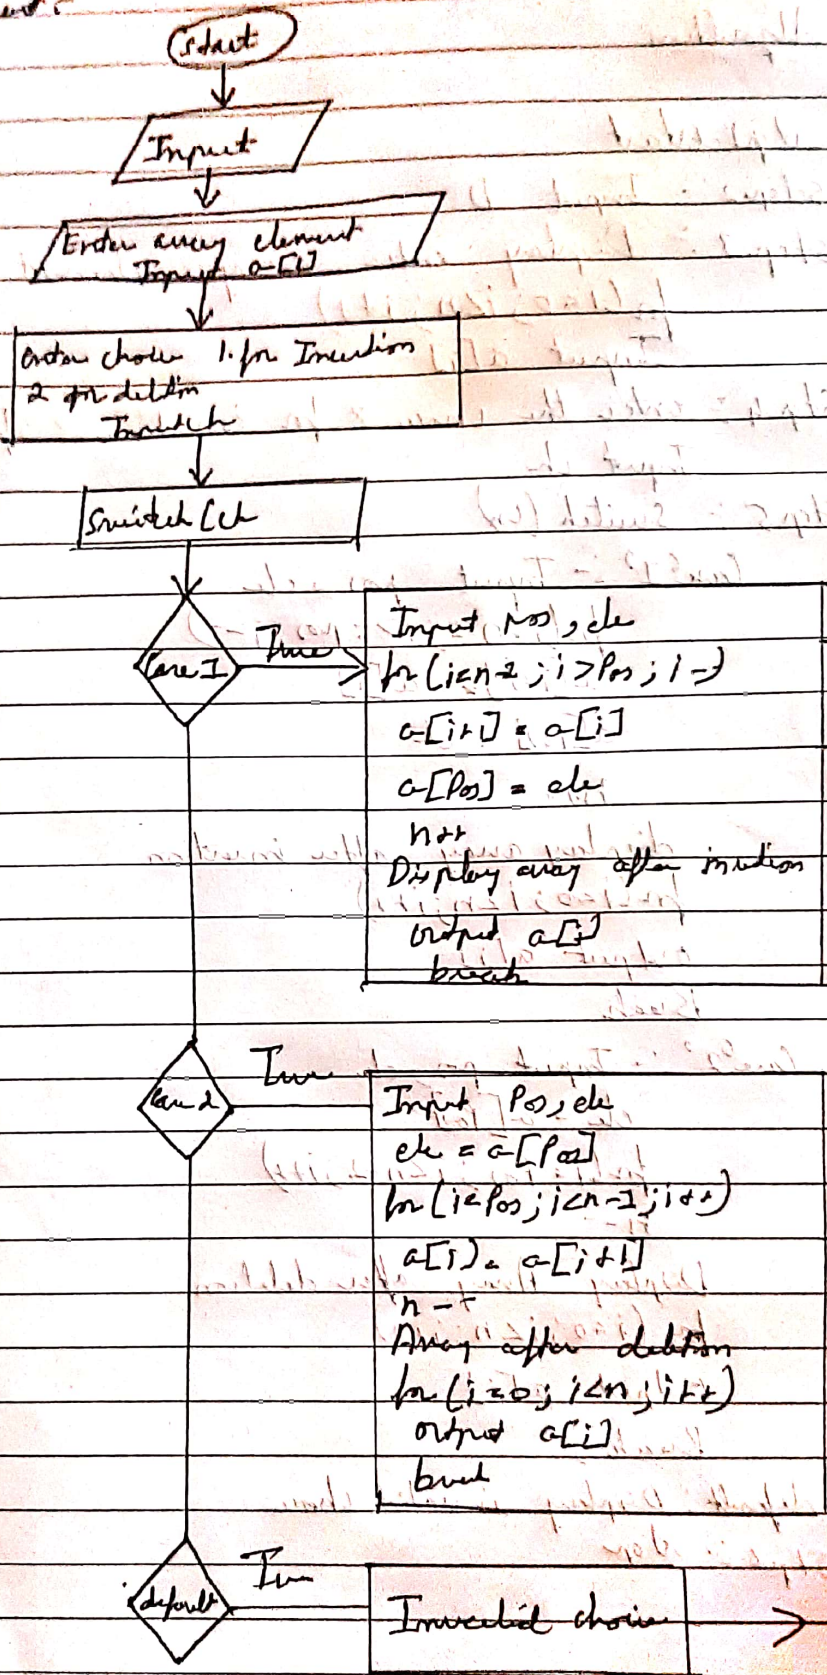 Start
Input
Enter array element
Input a[i]
Enter choice 1. for Insertion
2 for deletion
Input ch
Switch (ch
Case 1
True
Input Pos, ele
for (i=n-1; i>Pos; i--)
a[i+1] = a[i]
a[Pos] = ele
n++
Display array after insertion
output a[i]
break
Case 2
True
Input Pos, ele
ele = a[Pos]
for (i=Pos; i<n-1; i++)
a[i] = a[i+1]
n--
Array after deletion
for (i=0; i<n; i++)
output a[i]
break
default
True
Invalid choice